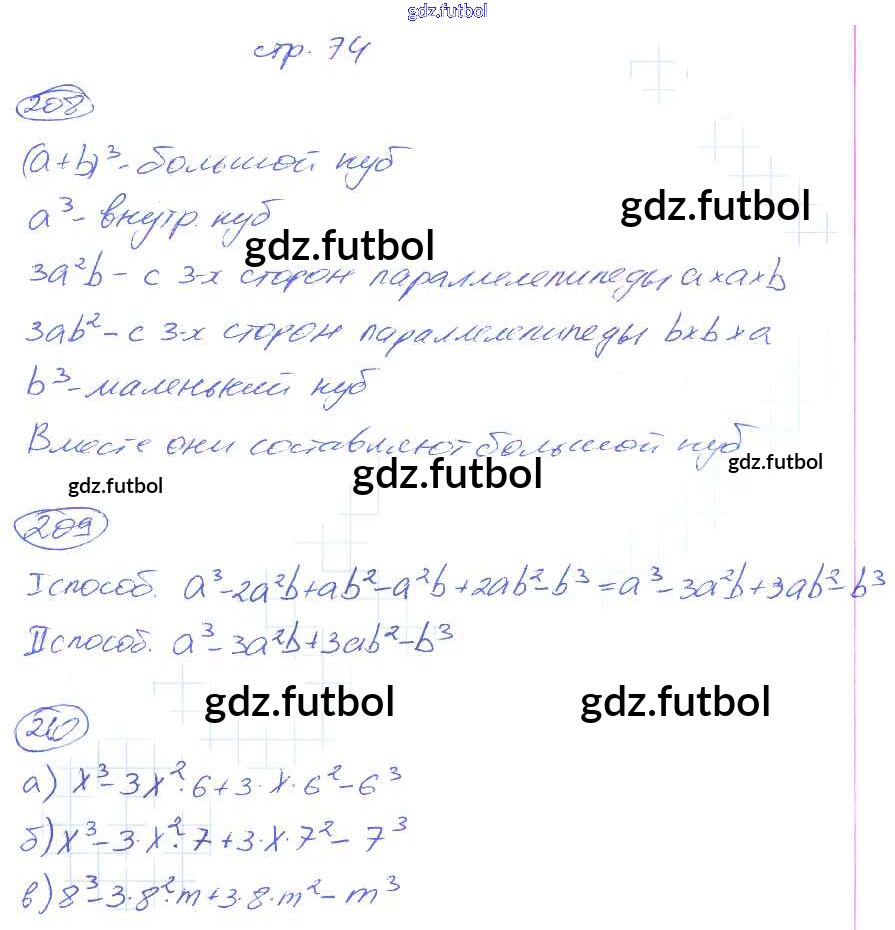 gdz.futbol
стр. 74
208
(a+b)³ - большой куб
a³ - внутр. куб
gdz.futbol
gdz.futbol
3a²b - с 3-х сторон параллелепипеды a×a×b
3ab² - с 3-х сторон параллелепипеды b×b×a
b³ - маленький куб
Вместе они составляют большой куб
gdz.futbol
gdz.futbol
gdz.futbol
209
I способ. a³-2a²b+ab²-a²b+2ab²-b³=a³-3a²b+3ab²-b³
II способ. a³-3a²b+3ab²-b³
gdz.futbol
gdz.futbol
210
а) x³-3x²·6+3·x·6²-6³
б) x³-3·x²·7+3·x·7²-7³
в) 8³-3·8²·m+3·8·m²-m³